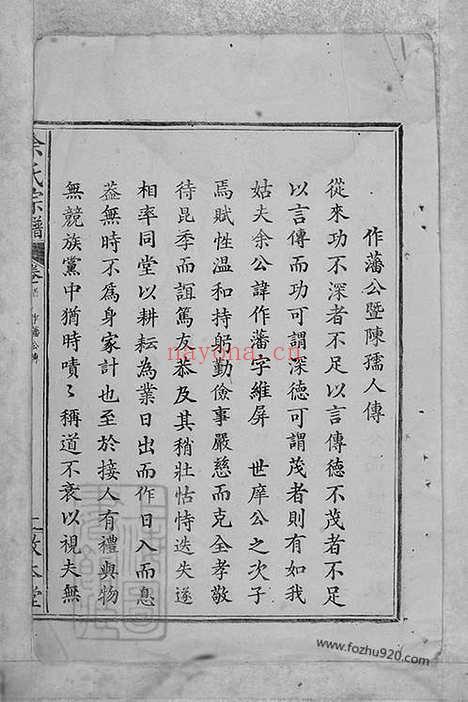 作藩公暨陳孺人傳
從來功不深者不足以言傳德不茂者不足
以言傳而功可謂深德可謂茂者則有如我
姑夫余公諱作藩字維屏 世庠公之次子
焉賦性溫和持躬勤儉事嚴慈而克全孝敬
待昆季而誼篤友恭及其稍壯怙恃迭失遂
相率同堂以耕耘為業日出而作日入而息
葢無時不為身家計也至於接人有禮與物
無競族黨中猶時嘖〻稱道不衰以視夫無
余氏宗譜
作藩公傳
敦本堂
nayona.cn
www.fozhu920.com